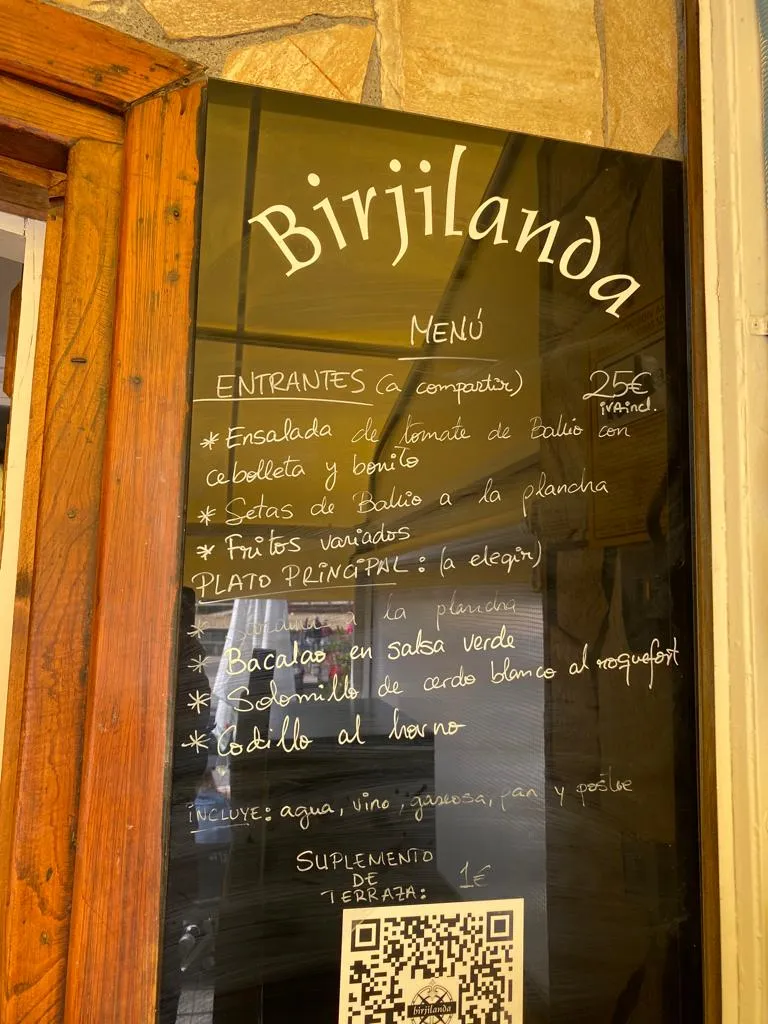 Birjilanda
MENÚ
ENTRANTES (a compartir) 25€
IVA incl.
* Ensalada de tomate de Bakio con
cebolleta y bonito
* Setas de Bakio a la plancha
* Fritos variados
PLATO PRINCIPAL: (a elegir)
* a la plancha
* Bacalao en salsa verde
* Solomillo de cerdo blanco al roquefort
* Codillo al horno
INCLUYE: agua, vino, gaseosa, pan y postre
SUPLEMENTO
DE 1€
TERRAZA:
birjilanda